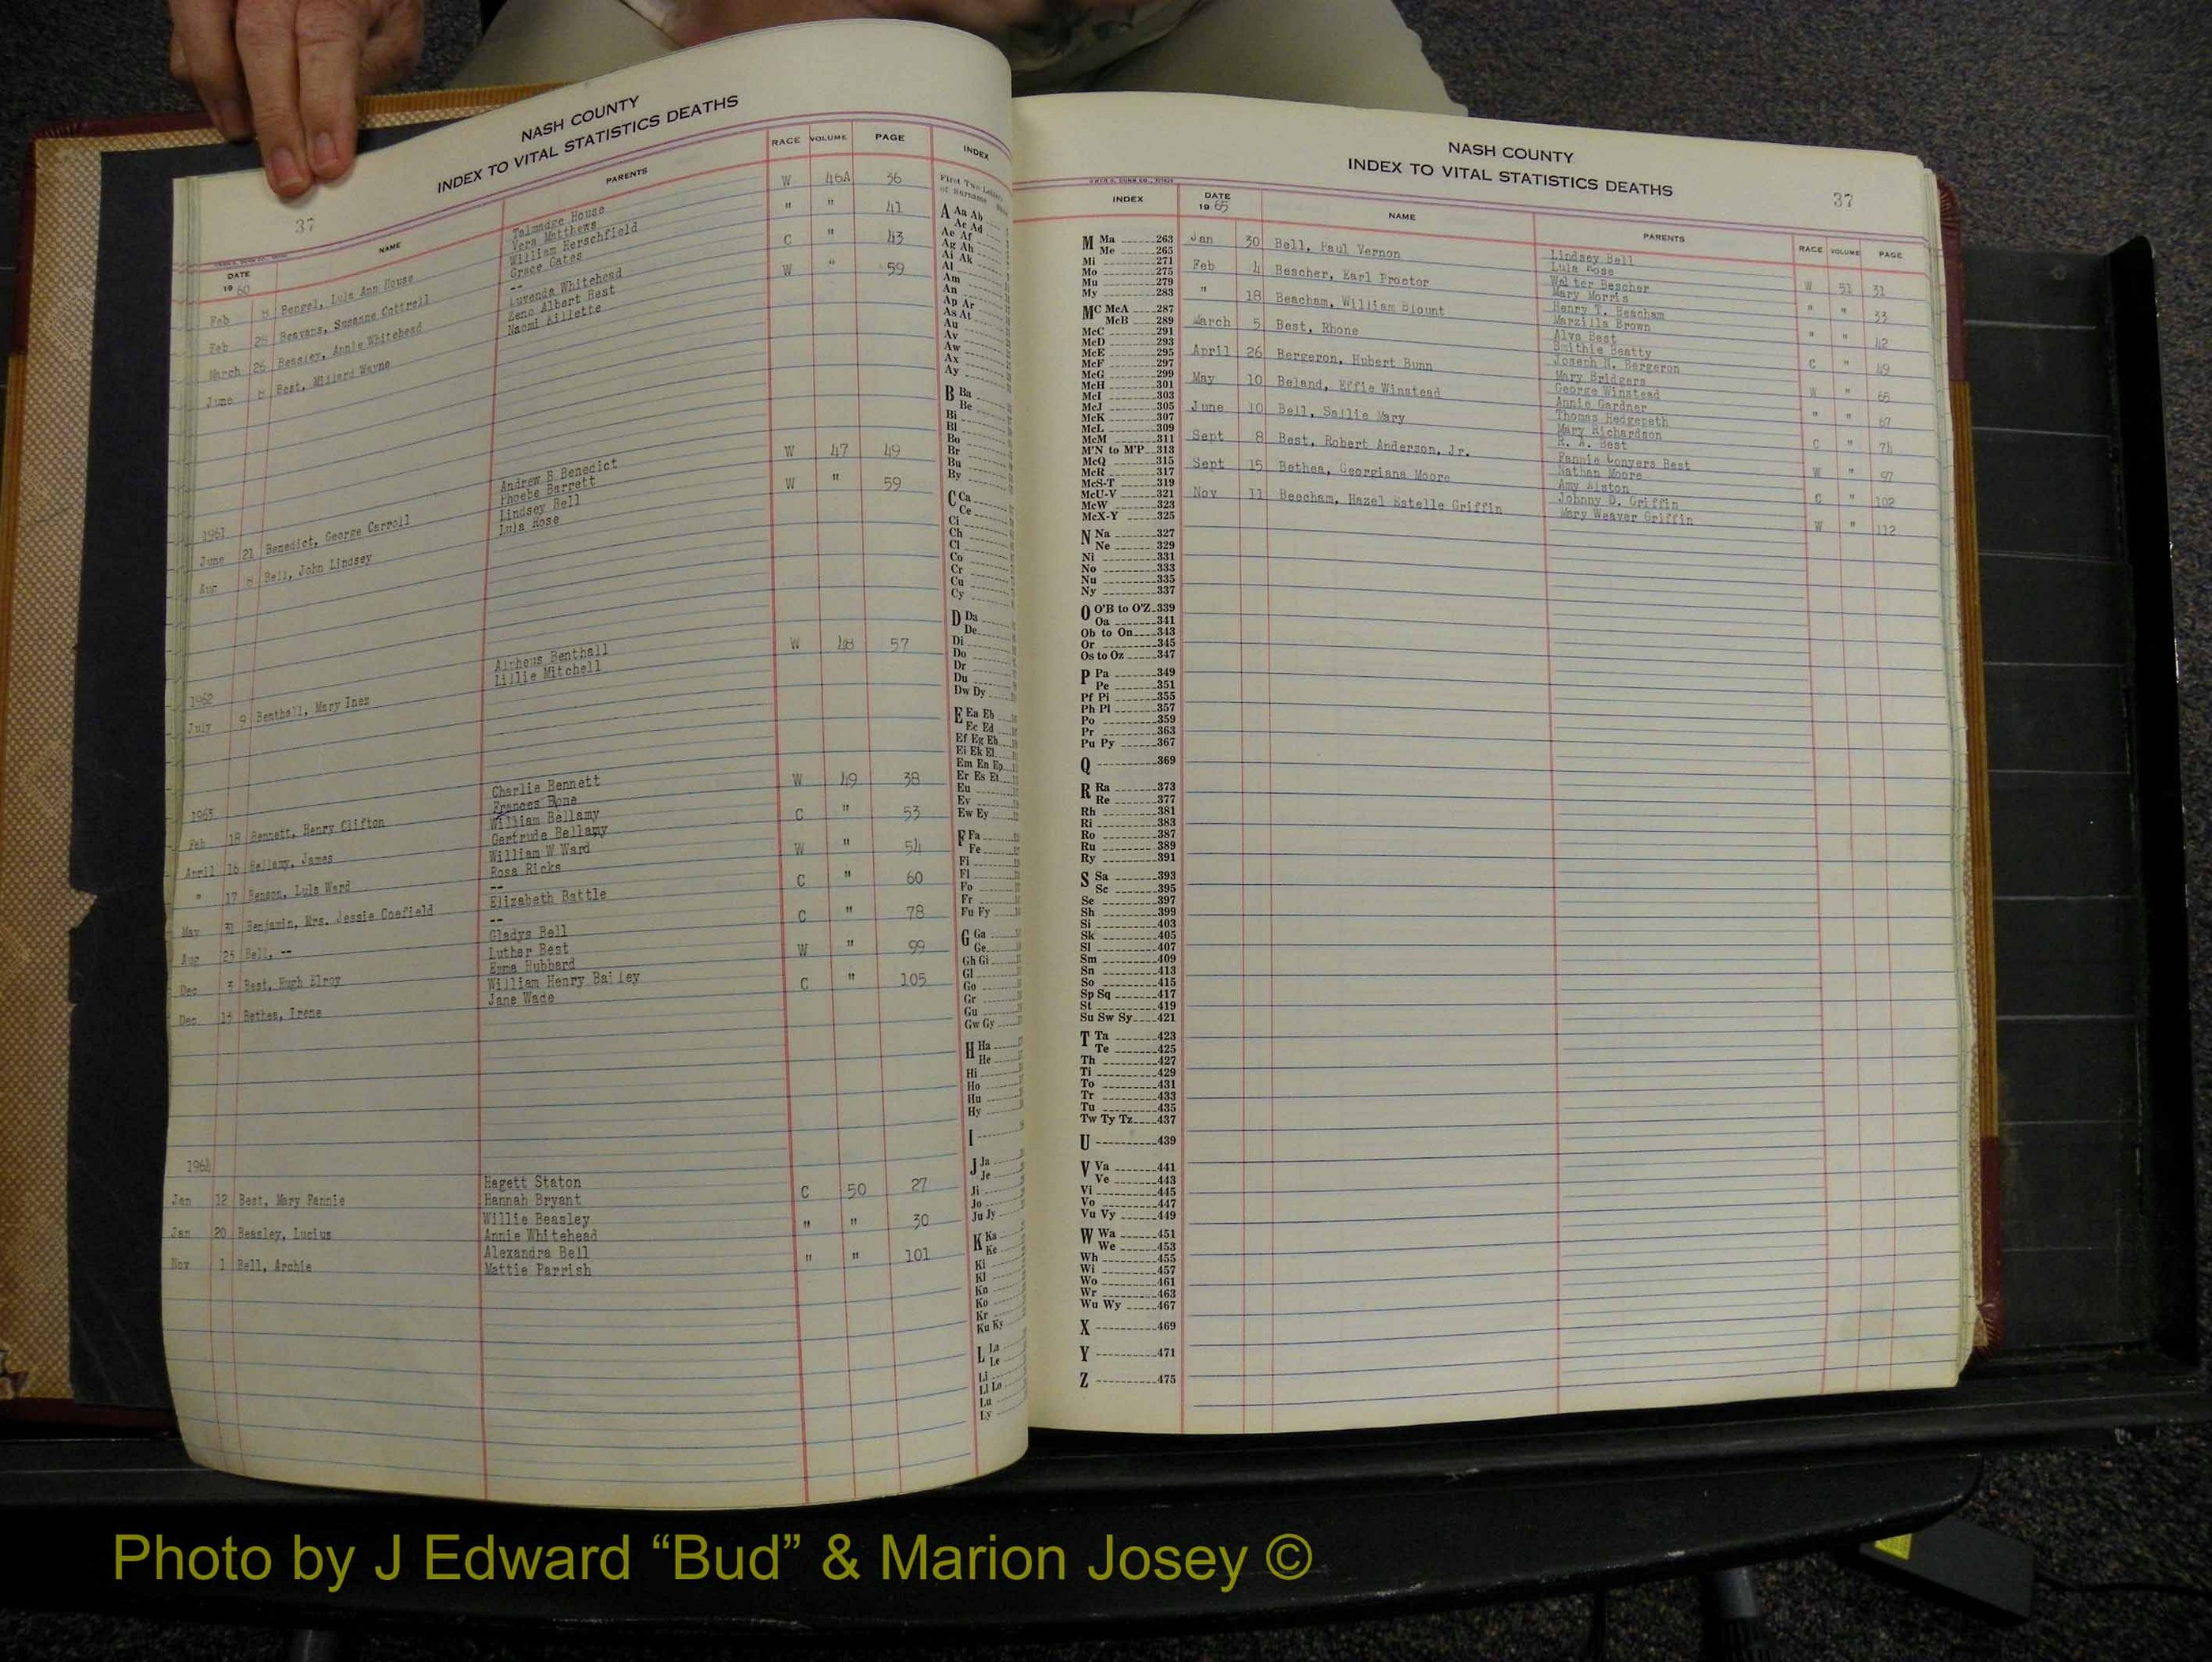 NASH COUNTY
INDEX TO VITAL STATISTICS DEATHS
37
DATE
19 60
NAME
PARENTS
RACE
VOLUME
PAGE
INDEX
Feb 8 Bengel, Lula Ann House Talmadge House W 46A 36
Vera Matthews
Feb 28 Beavans, Susanne Cottrell William Herschfield " " 41
Grace Gates
March 26 Beasley, Annie Whitehead -- C " 43
Luvenda Whitehead
June 8 Best, Millard Wayne Zeno Albert Best W " 59
Naomi Killette
1961
June 21 Benedict, George Carroll Andrew B Benedict W 47 49
Phoebe Barrett
Aug 8 Bell, John Lindsey Lindsey Bell W " 59
Lula Rose
1962
July 9 Benthall, Mary Inez Alpheus Benthall W 48 57
Lillie Mitchell
1963
Feb 18 Bennett, Henry Clifton Charlie Bennett W 49 38
Frances Bone
April 16 Bellamy, James William Bellamy C " 53
Gertrude Bellamy
" 17 Benson, Lula Ward William W Ward W " 54
Rosa Ricks
May 31 Benjamin, Mrs. Jessie Coefield -- C " 60
Elizabeth Battle
Aug 25 Bell, -- -- C " 78
Gladys Bell
Dec 3 Best, Hugh Elroy Luther Best W " 99
Emma Hubbard
Dec 13 Bethea, Irene William Henry Bailey C " 105
Jane Wade
1964
Jan 12 Best, Mary Fannie Hagett Staton C 50 27
Hannah Bryant
Jan 20 Beasley, Lucius Willie Beasley " " 30
Annie Whitehead
Nov 1 Bell, Archie Alexandra Bell " " 101
Mattie Parrish
First Two Letters
of Surname
A Aa Ab
Ac Ad
Ae Af
Ag Ah
Ai Ak
Al
Am
An
Ap Ar
As At
Au
Av
Aw
Ax
Ay
B Ba
Be
Bi
Bl
Bo
Br
Bu
By
C Ca
Ce
Ci
Ch
Cl
Co
Cr
Cu
Cy
D Da
De
Di
Do
Dr
Du
Dw Dy
E Ea Eb
Ec Ed
Ef Eg Eh
Ei Ek El
Em En Ep
Er Es Et
Eu
Ev
Ew Ey
F Fa
Fe
Fi
Fl
Fo
Fr
Fu Fy
G Ga
Ge
Gh Gi
Gl
Go
Gr
Gu
Gw Gy
H Ha
He
Hi
Ho
Hu
Hy
I
J Ja
Je
Ji
Jo
Ju Jy
K Ka
Ke
Ki
Kl
Kn
Ko
Kr
Ku Ky
L La
Le
Li
Ll Lo
Lu
Ly
NASH COUNTY
INDEX TO VITAL STATISTICS DEATHS
37
INDEX
DATE
19 65
NAME
PARENTS
RACE
VOLUME
PAGE
M Ma 263
Me 265
Mi 271
Mo 275
Mu 279
My 283
Mc McA 287
McB 289
McC 291
McD 293
McE 295
McF 297
McG 299
McH 301
McI 303
McJ 305
McK 307
McL 309
McM 311
M'N to M'P 313
McQ 315
McR 317
McS-T 319
McU-V 321
McW 323
McX-Y 325
N Na 327
Ne 329
Ni 331
No 333
Nu 335
Ny 337
O O'B to O'Z 339
Oa 341
Ob to On 343
Or 345
Os to Oz 347
P Pa 349
Pe 351
Pf Pi 355
Ph Pl 357
Po 359
Pr 363
Pu Py 367
Q 369
R Ra 373
Re 377
Rh 381
Ri 383
Ro 387
Ru 389
Ry 391
S Sa 393
Sc 395
Se 397
Sh 399
Si 403
Sk 405
Sl 407
Sm 409
Sn 413
So 415
Sp Sq 417
St 419
Su Sw Sy 421
T Ta 423
Te 425
Th 427
Ti 429
To 431
Tr 433
Tu 435
Tw Ty Tz 437
U 439
V Va 441
Ve 443
Vi 445
Vo 447
Vu Vy 449
W Wa 451
We 453
Wh 455
Wi 457
Wo 461
Wr 463
Wu Wy 467
X 469
Y 471
Z 475
Jan 30 Bell, Paul Vernon Lindsey Bell W 51 31
Lula Rose
Feb 4 Bescher, Earl Proctor Walter Bescher " " 33
Mary Morris
" 18 Beacham, William Blount Henry T. Beacham " " 42
Marzilla Brown
March 5 Best, Rhone Alva Best C " 49
Smithie Beatty
April 26 Bergeron, Hubert Bunn Joseph N. Bergeron W " 65
Mary Bridgers
May 10 Beland, Effie Winstead George Winstead " " 67
Annie Gardner
June 10 Bell, Sallie Mary Thomas Hedgepeth C " 74
Mary Richardson
Sept 8 Best, Robert Anderson, Jr. R. A. Best W " 97
Fannie Conyers Best
Sept 15 Bethea, Georgiana Moore Nathan Moore C " 102
Amy Alston
Nov 11 Beecham, Hazel Estelle Griffin Johnny D. Griffin W " 112
Mary Weaver Griffin
Photo by J Edward “Bud” & Marion Josey ©